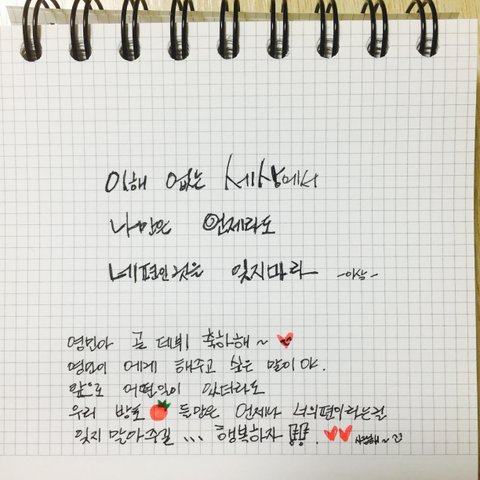 이해 없는 세상에서
나만은 언제라도
네편인것을 잊지마라 -이상-
영민아 곧 데뷔 축하해~
영민이 에게 해주고 싶은 말이야.
앞으로 어떤일이 있더라도
우리 방토 들만은 언제나 너의편이라는걸
잊지 말아주길 ... 행복하자 !!. 사랑해~